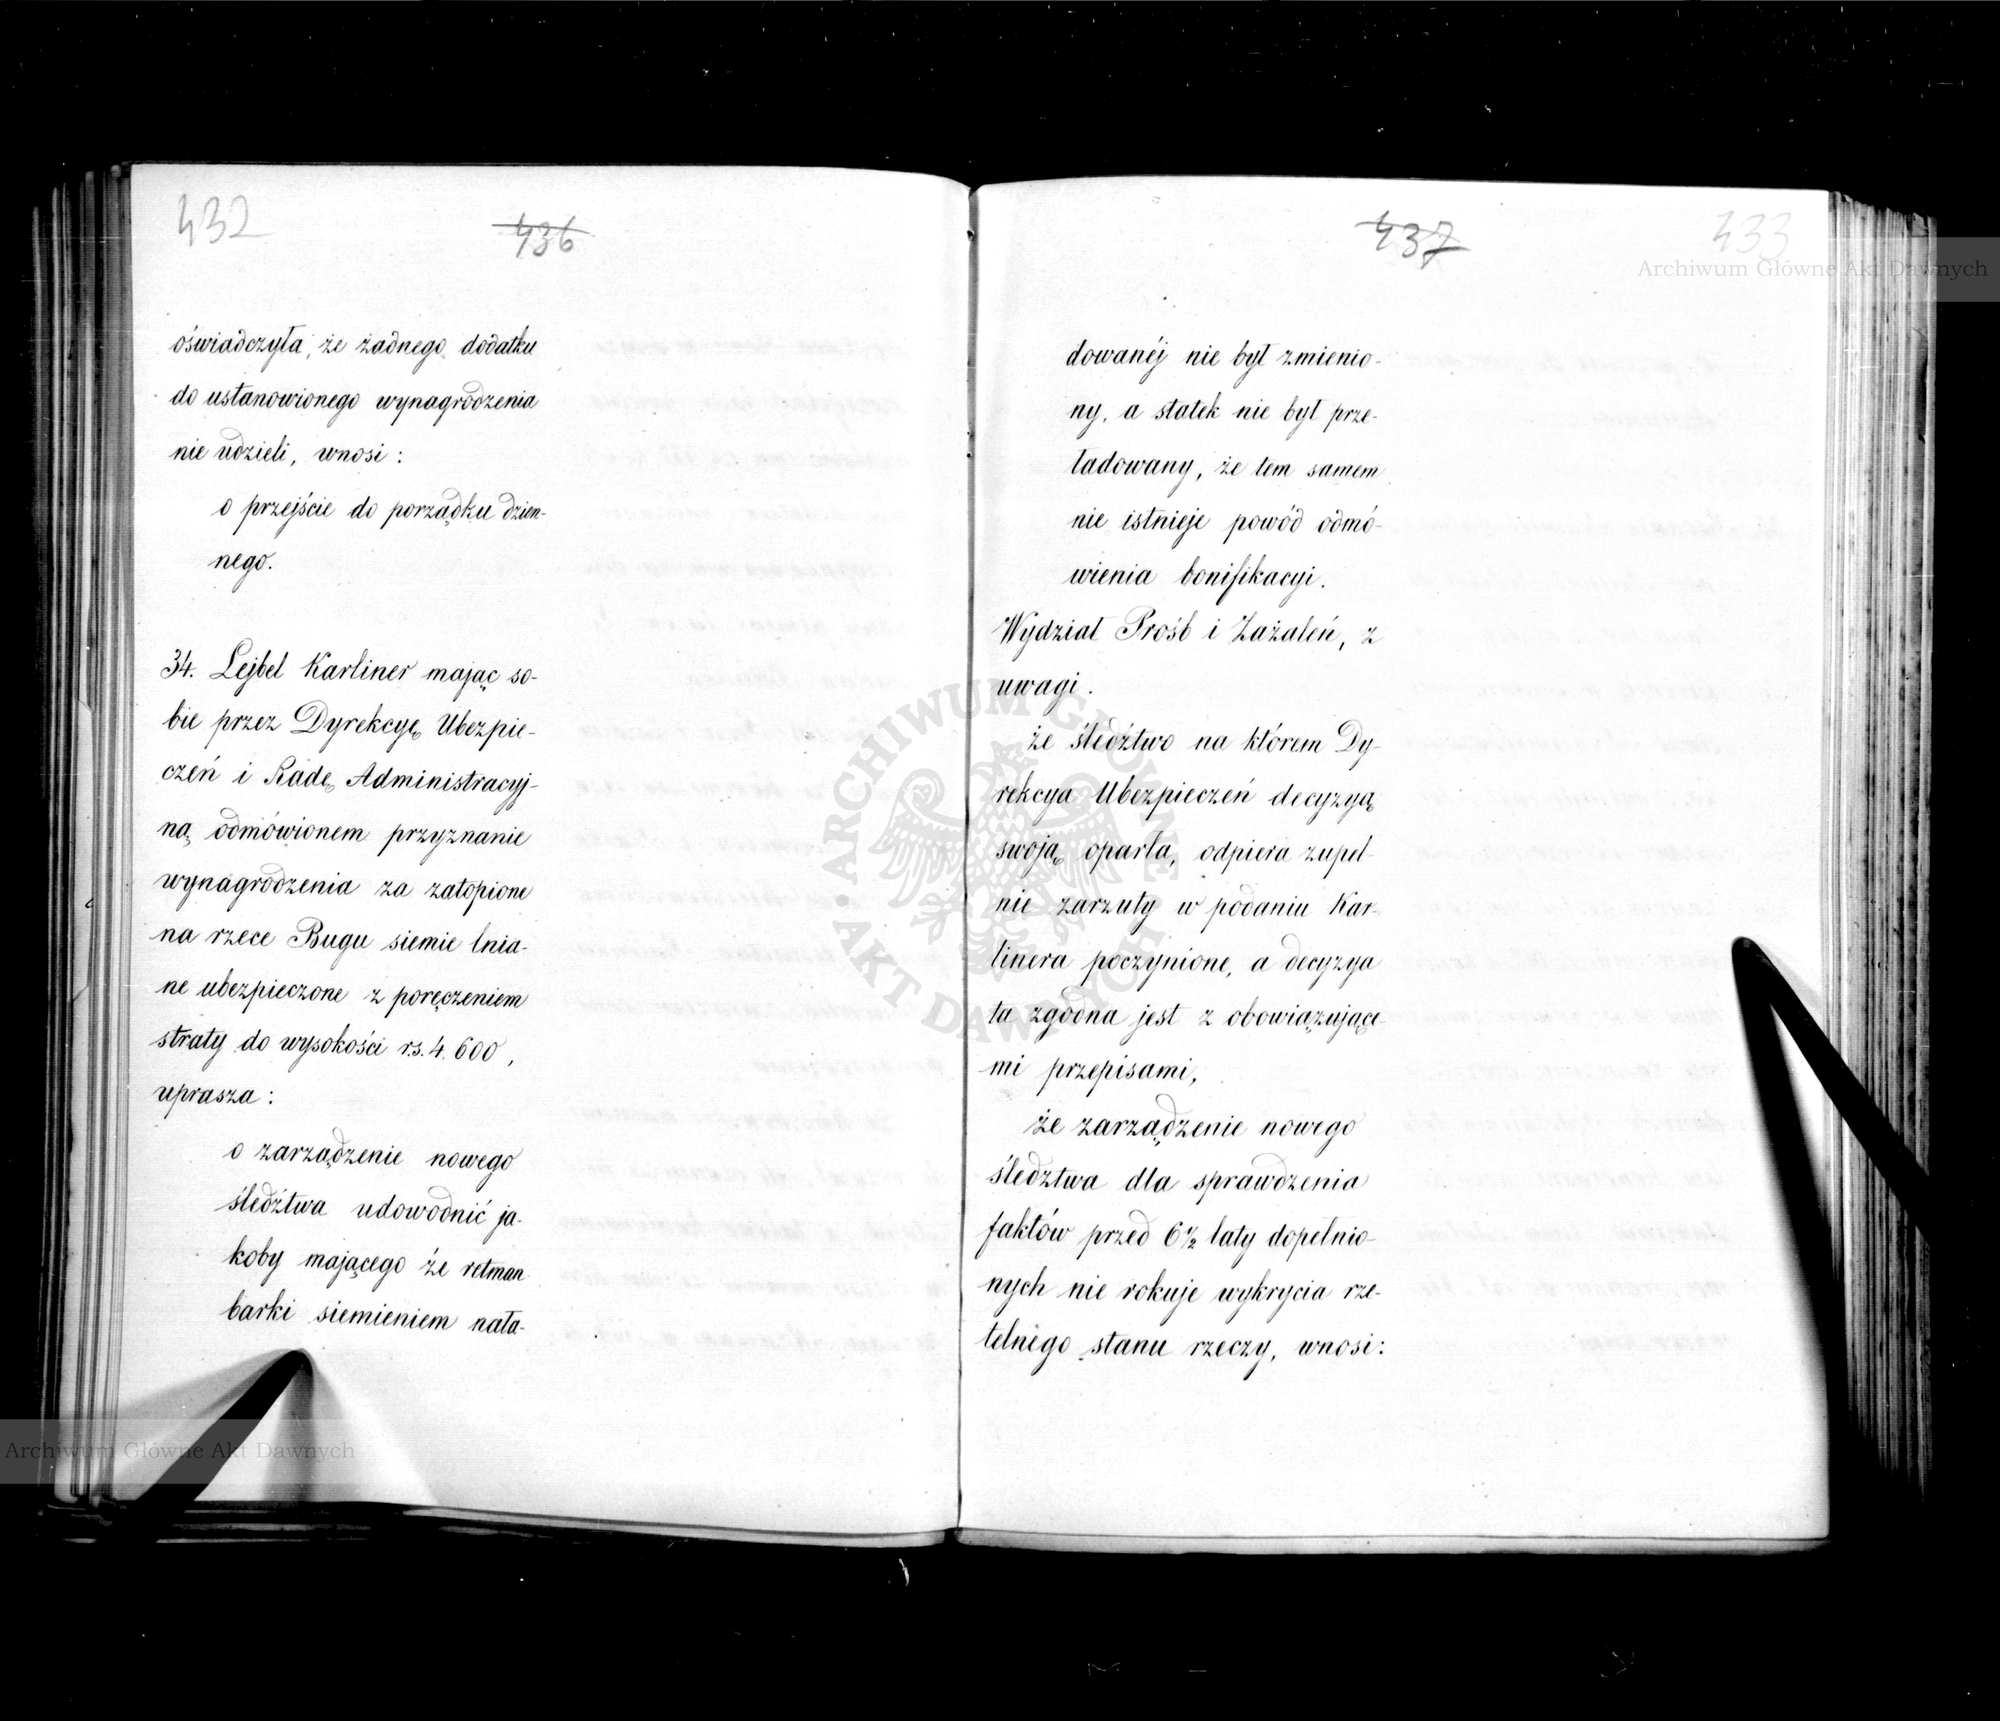 432
436
oświadczyła, że żadnego dodatku
do ustanowionego wynagrodzenia
nie udzieli, wnosi:
o przejście do porządku dzien-
nego.
34. Lejbel Karliner mając so-
bie przez Dyrekcyę Ubezpie-
czeń i Radę Administracyj-
ną odmówionem przyznanie
wynagrodzenia za zatopione
na rzece Bugu siemie lnia-
ne ubezpieczone z poręczeniem
straty do wysokości rs. 4,600,
uprasza:
o zarządzenie nowego
śledźtwa udowodnić ja-
koby mającego że retman
barki siemieniem nała-
437
433
dowanéj nie był zmienio-
ny, a statek nie był prze-
ładowany, że tem samem
nie istnieje powód odmó-
wienia bonifikacyi.
Wydział Prośb i Zażaleń, z
uwagi.
że śledźtwo na którem Dy-
rekcya Ubezpieczeń decyzyą
swoją oparła, odpiera zupeł-
nie zarzuty w podaniu Kar-
linera poczynione, a decyzya
ta zgodna jest z obowiązujące-
mi przepisami,
że zarządzenie nowego
śledztwa dla sprawdzenia
faktów przed 6 1/2 laty dopełnio-
nych nie rokuje wykrycia rze-
telnego stanu rzeczy, wnosi:
Archiwum Główne Akt Dawnych
ARCHIWUM GŁÓWNE AKT DAWNYCH
Archiwum Główne Akt Dawnych